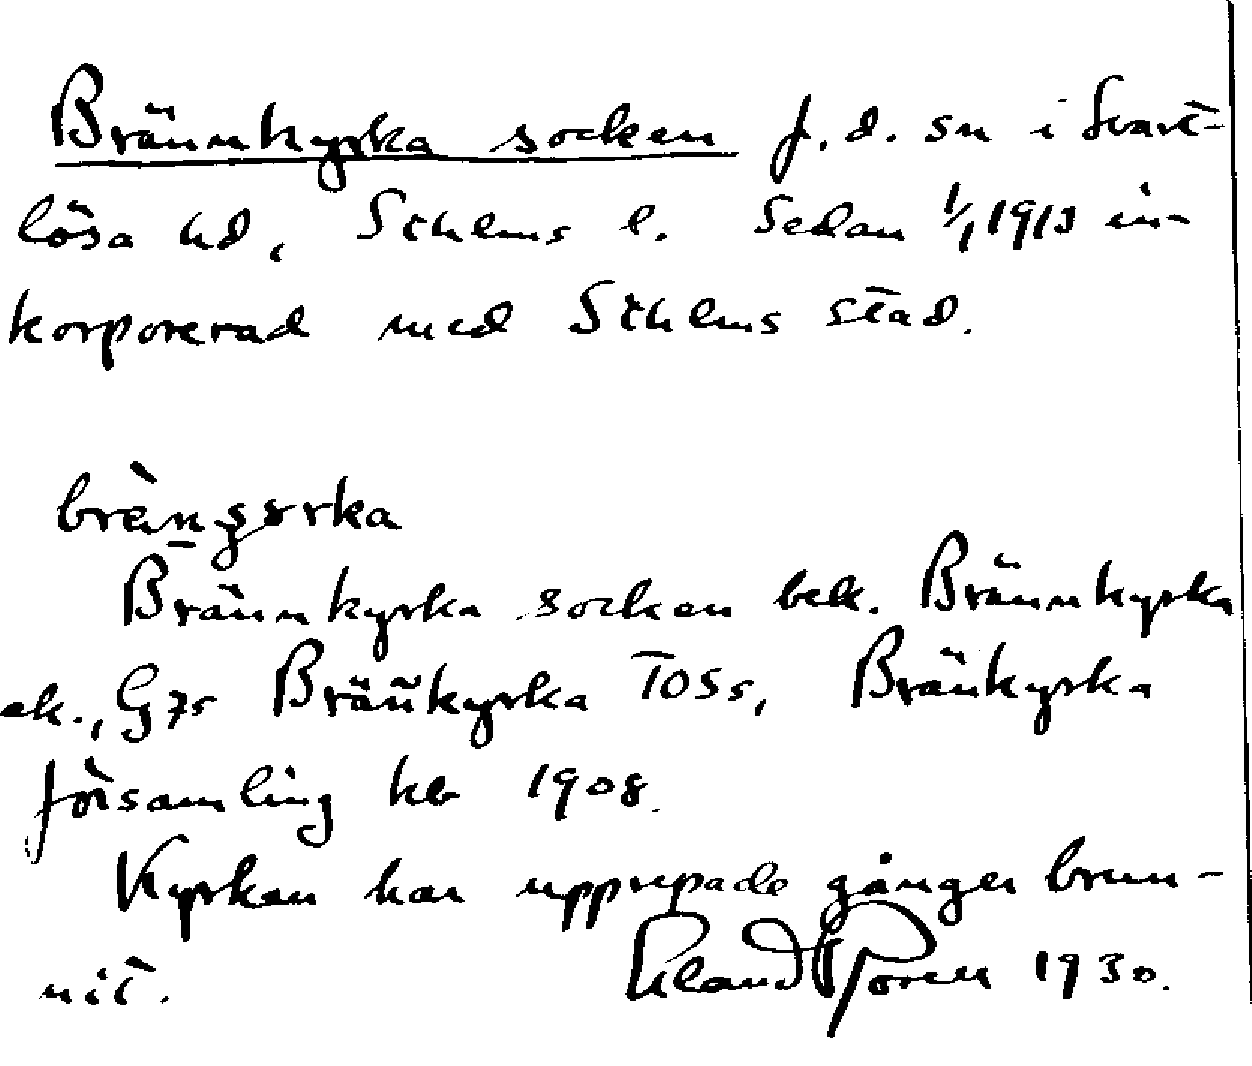 Brännkyrka socken f. d. sn i Svart-
lösa hd, Sthlms l. Sedan 1/1 1913 in-
korporerad med Sthlms stad.
Brännkyrka socken bek. Brännkyrka
ek., G7s Brän̄kyrka TOSs, Bränkyrka
församling kb 1908.
Kyrkan har upprepade gånger brun-
nit. 1930.